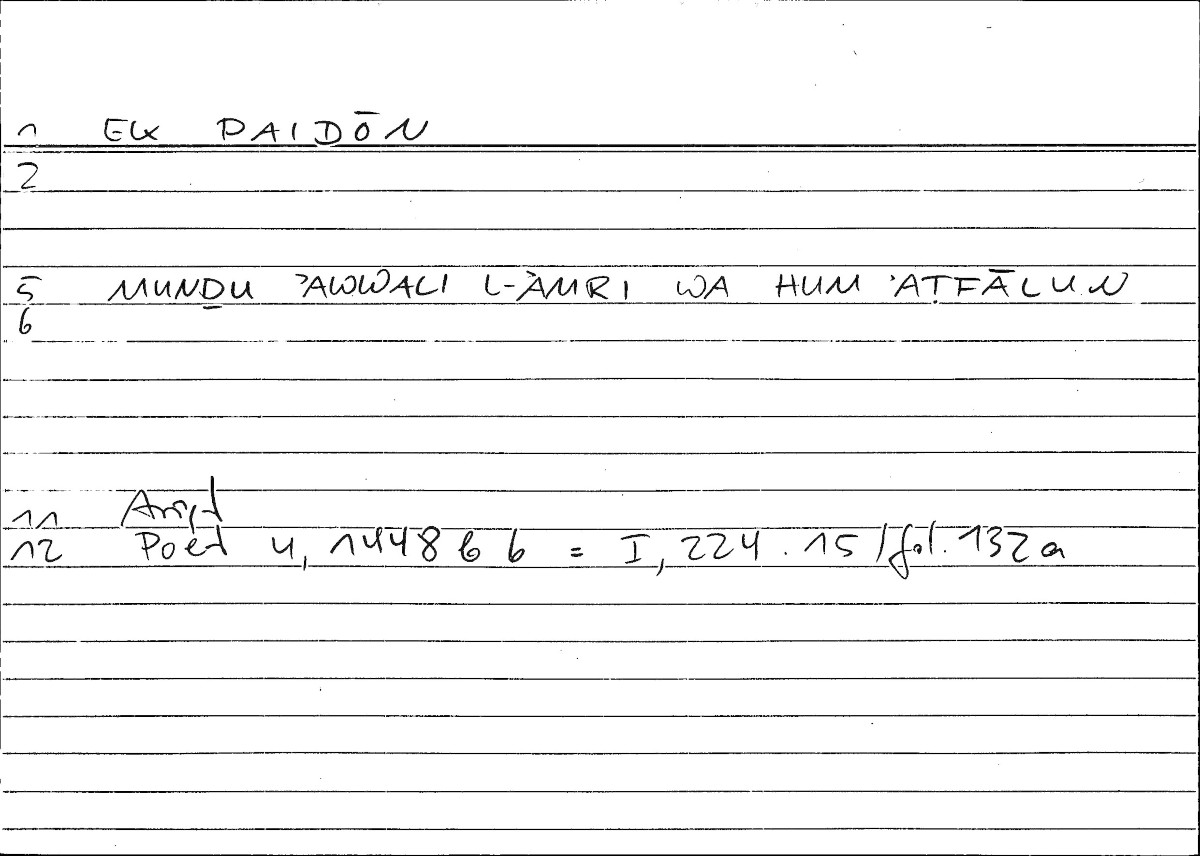 1 EK PAIDŌN
2
5 MUNḎU ʾAWWALI L-ʾAMRI WA HUM ʾAṬFĀLUN
6
11 Arist
12 Poet 4, 1448 b 6 = I, 224.15 / fol. 132 a